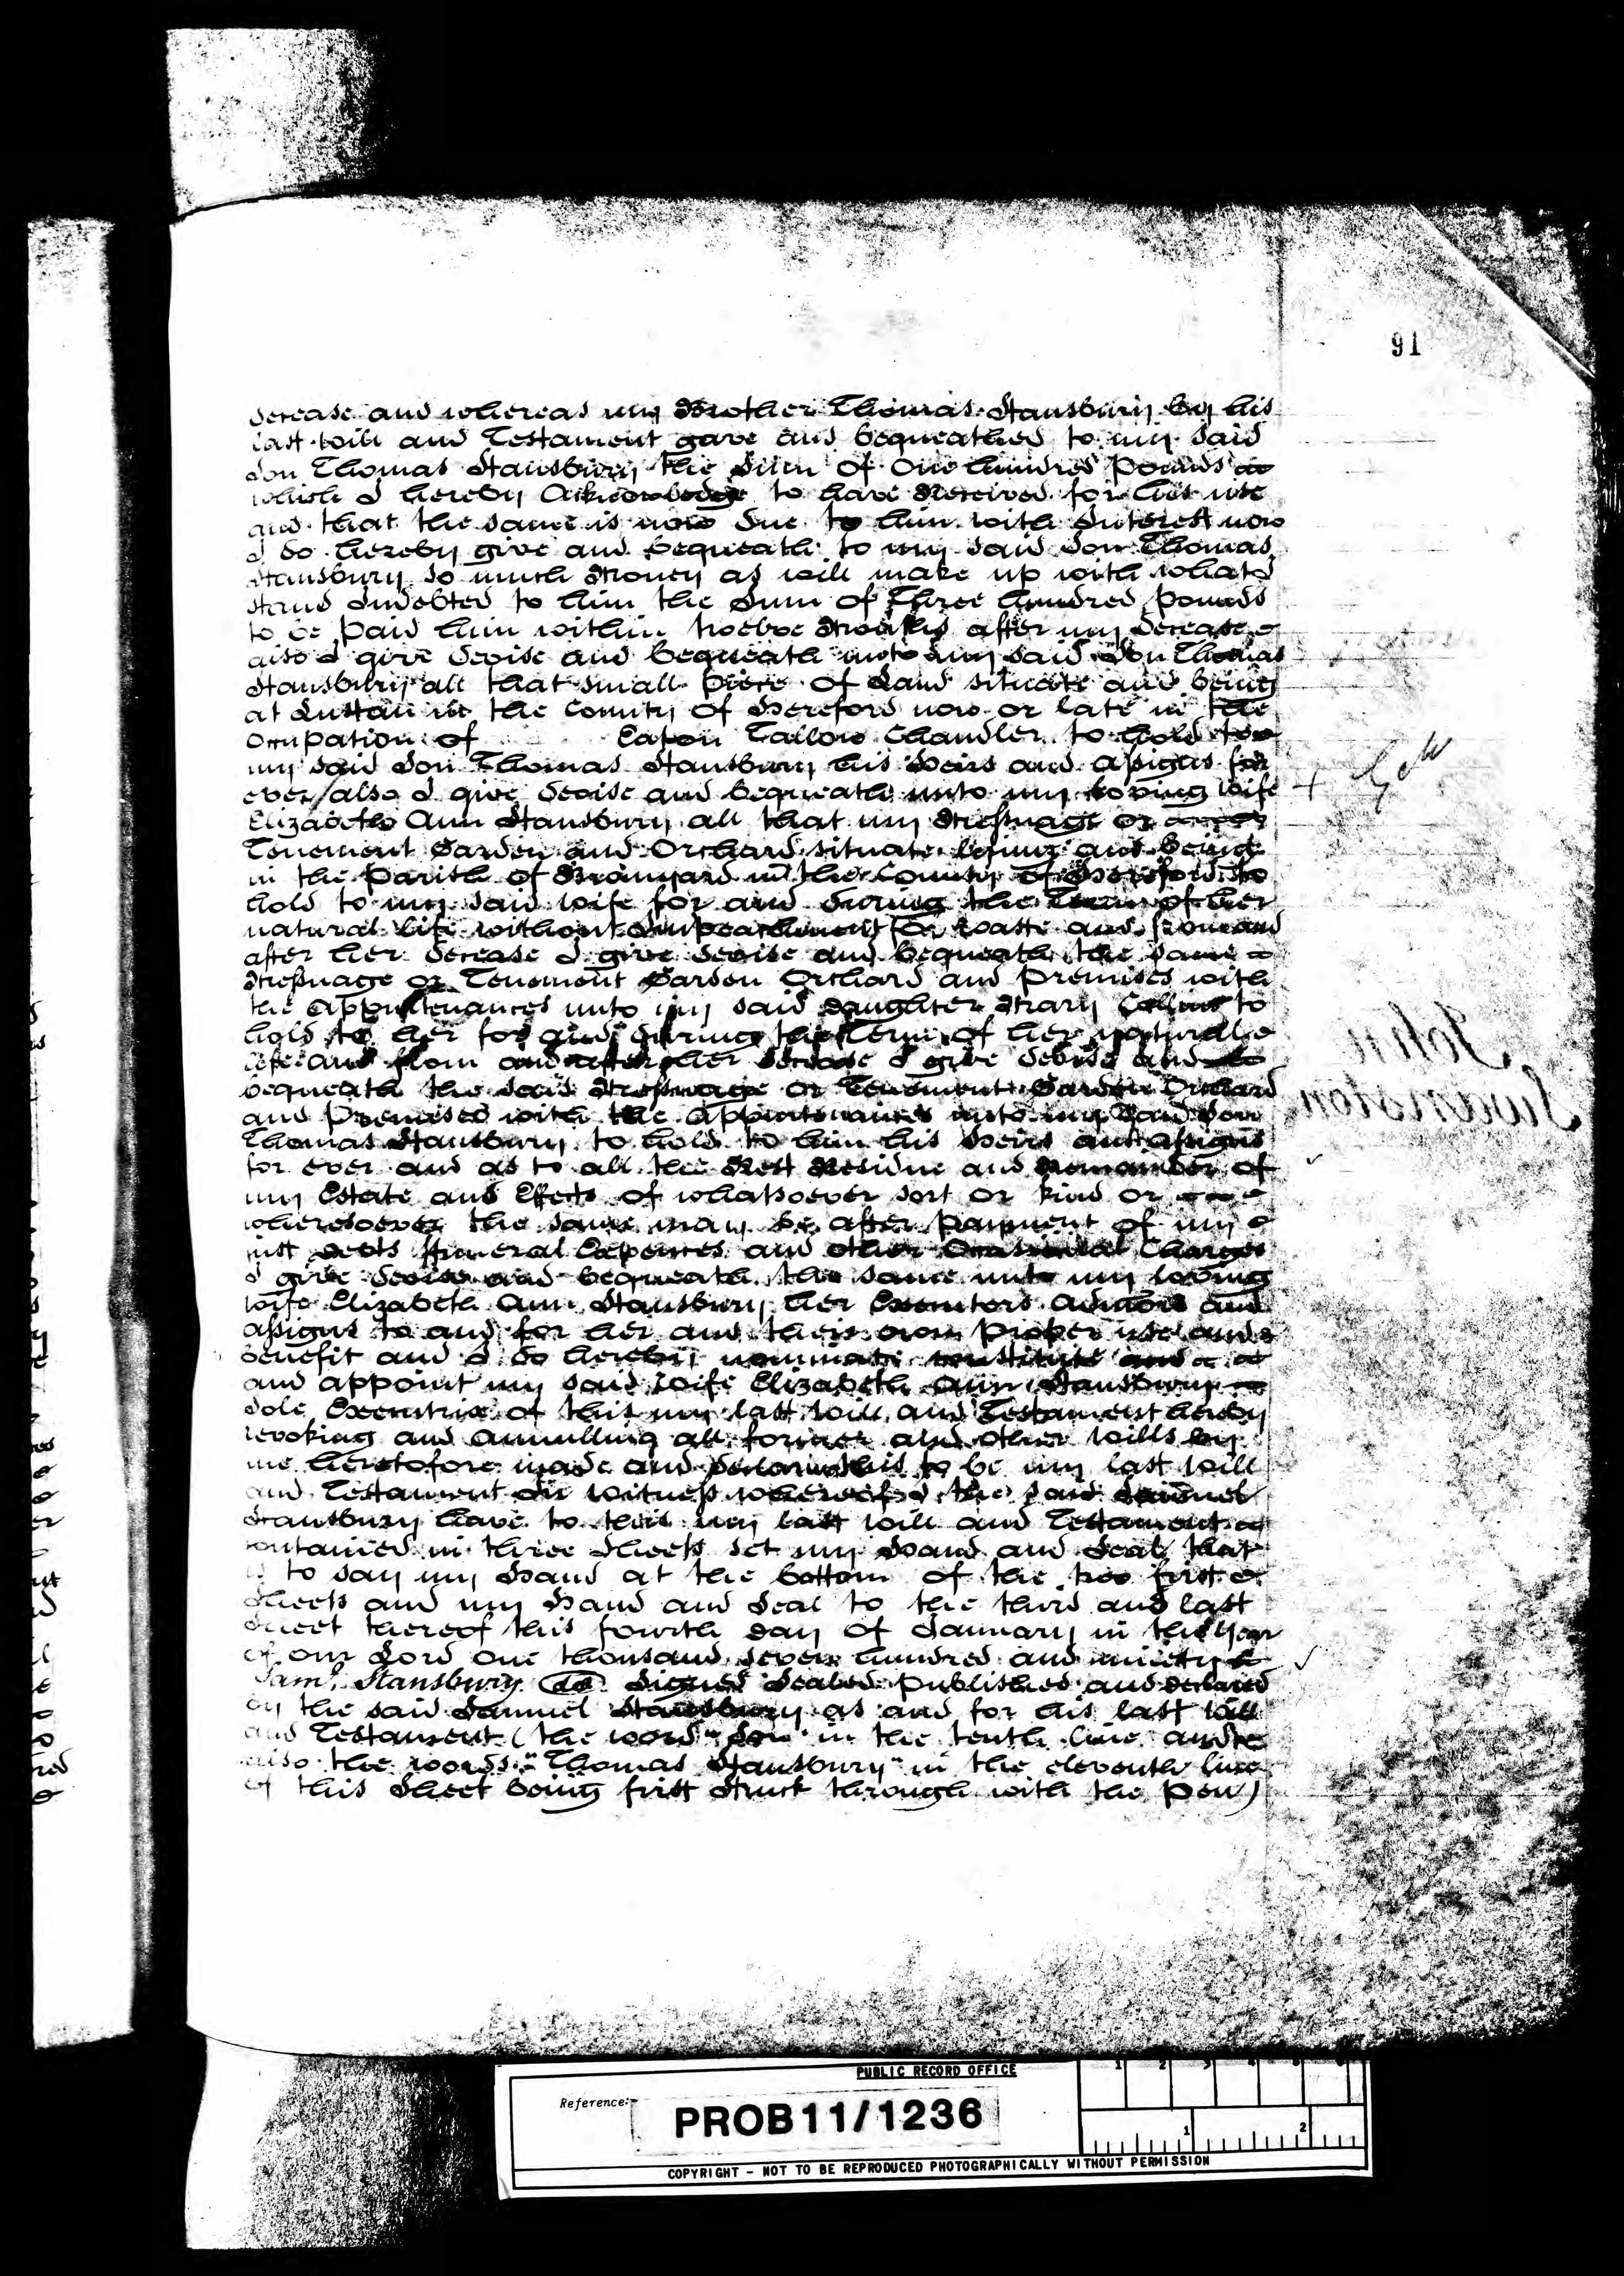 91
decease and whereas my Brother Thomas Stansbury by his
last will and Testament gave and bequeathed to my said
Son Thomas Stansbury the Sum of One hundred Pounds
which I hereby Acknowledge to have Received for his use
and that the same is now due to him with Interest now
I do hereby give and bequeath to my said Son Thomas
Stansbury so much Money as will make up with what I
stand Indebted to him the Sum of Three hundred Pounds
to be paid him within twelve Months after my decease
also I give devise and bequeath unto my said Son Thomas
Stansbury all that small piece of Land situate and being
at Luston in the County of Hereford now or late in the
Occupation of Eaton Tallow Chandler to hold to
my said Son Thomas Stansbury his Heirs and Assigns for
ever / also I give devise and bequeath unto my loving Wife
Elizabeth Ann Stansbury all that my Messuage or
Tenement Garden and Orchard situate lying and being
in the Parish of Bromyard in the County of Hereford to
hold to my said wife for and during the Term of her
natural life without Impeachment for waste and from and
after her decease I give devise and bequeath the same
Messuage or Tenement Garden Orchard and Premises with
the Appurtenances unto my said daughter Mary Collins to
hold to her for and during the Term of her natural
life and from and after her decease I give devise and
bequeath the said Messuage or Tenement Garden Orchard
and Premises with the Appurtenances unto my said Son
Thomas Stansbury to hold to him his Heirs and Assigns
for ever and as to all the Rest Residue and Remainder of
my Estate and Effects of whatsoever sort or kind or
wheresoever the same may be after payment of my
just debts funeral Expences and other Occasional Charges
I give devise and bequeath the same unto my loving
wife Elizabeth Ann Stansbury her Executors Admors and
assigns to and for her and their own proper use and
benefit and I do hereby nominate constitute and
and appoint my said wife Elizabeth Ann Stansbury
Sole Executrix of this my last will and Testament hereby
revoking and annulling all former and other Wills by
me heretofore made and declaring this to be my last will
and Testament In Witness whereof I the said Samuel
Stansbury have to this my last will and Testament
contained in three Sheets set my Hand and Seal that
is to say my Hand at the bottom of the two first
Sheets and my Hand and Seal to the third and last
Sheet thereof this fourth day of January in the Year
of our Lord One thousand seven hundred and ninety
Saml. Stansbury LS Signed Sealed Published and Declared
by the said Samuel Stansbury as and for his last will
and Testament (the word "Son" in the tenth line and
also the words "Thomas Stansbury" in the eleventh line
of this Sheet being first struck through with the Pen)
John
Swanston
PUBLIC RECORD OFFICE
Reference:-
PROB 11/1236
1 2 3 4 5 6
1 2
COPYRIGHT - NOT TO BE REPRODUCED PHOTOGRAPHICALLY WITHOUT PERMISSION